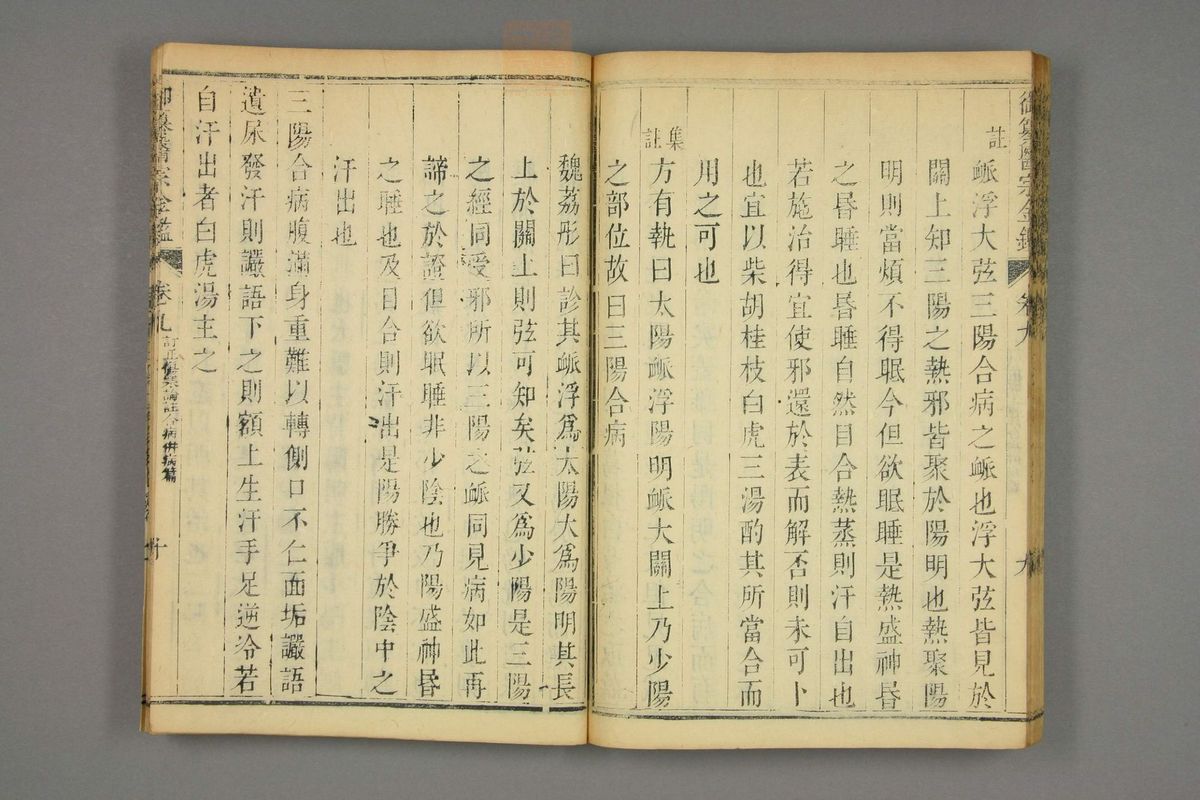 御纂醫宗金鑑 卷九 九
註
䘑浮大弦三陽合病之䘑也浮大弦皆見於
關上知三陽之熱邪皆聚於陽明也熱聚陽
明則當煩不得眠今但欲眠睡是熱盛神昏
之昏睡也昏睡自然目合熱蒸則汗自出也
若施治得宜使邪還於表而解否則未可卜
也宜以柴胡桂枝白虎三湯酌其所當合而
用之可也
集註
方有執曰太陽䘑浮陽明䘑大關上乃少陽
之部位故曰三陽合病
魏荔彤曰診其䘑浮爲太陽大爲陽明其長
上於關上則弦可知矣弦又爲少陽是三陽
之經同受邪所以三陽之䘑同見病如此再
諦之於證但欲眠睡非少陰也乃陽盛神昏
之睡也及目合則汗出是陽勝爭於陰中之
汗出也
三陽合病腹滿身重難以轉側口不仁面垢讝語
遺尿發汗則讝語下之則額上生汗手足逆冷若
自汗出者白虎湯主之
御纂醫宗金鑑 卷九 訂正傷寒論註合病併病篇 十